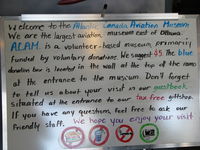 Welcome to the Atlantic Canada Aviation Museum
We are the largest aviation museum east of Ottawa.
ACAM. is a volunteer-based museum primarily
funded by voluntary donations. We suggest $5. The blue
donation box is located in the wall at the top of the ramp
at the entrance to the museum. Don't forget
to tell us about your visit in our guestbook
situated at the entrance to our tax free giftshop.
If you have any questions, feel free to ask our
friendly staff. We hope you enjoy your visit